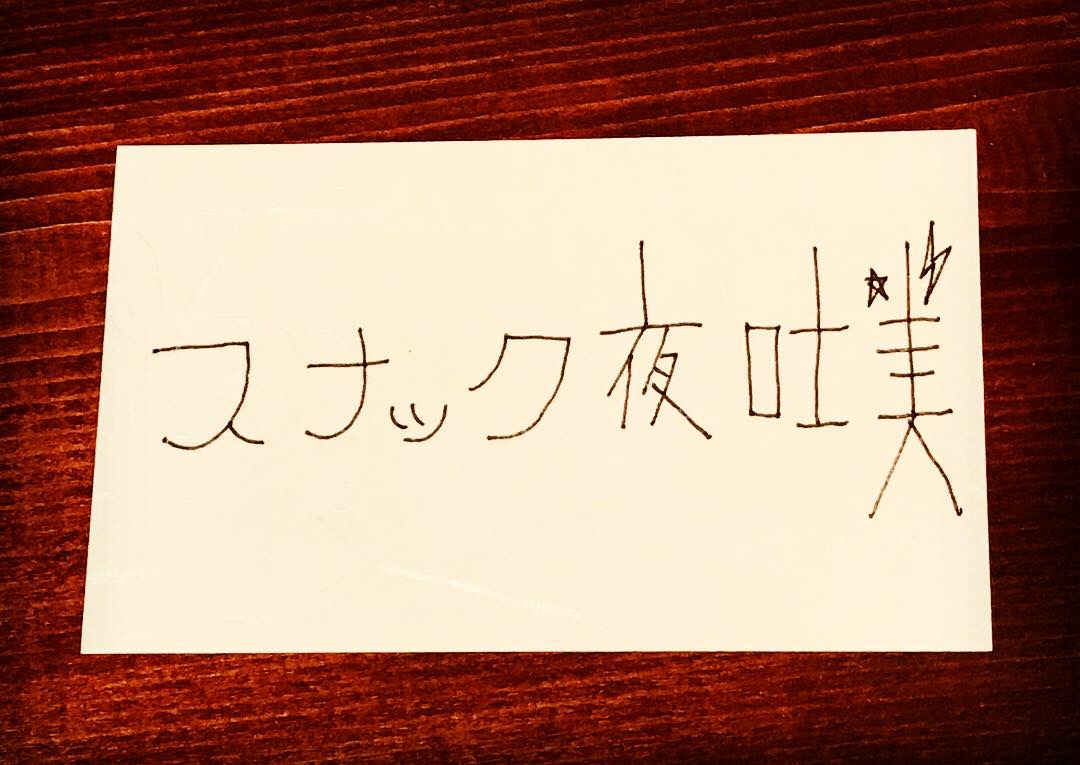 スナック夜吐美